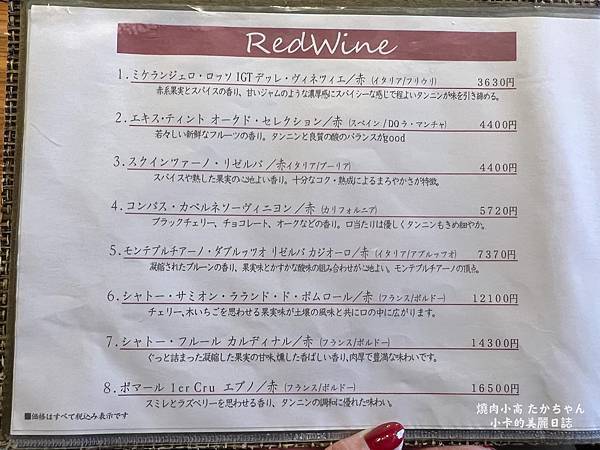 RedWine
1. ミケランジェロ・ロッソ IGT デッレ・ヴィネツィエ／赤 (イタリア/フリウリ) 3630円
赤系果実とスパイスの香り、甘いジャムのような濃厚感にスパイシーな感じで程よいタンニンが味を引き締める。
2. エキス・ティント オークド・セレクション／赤 (スペイン / DO ラ・マンチャ) 4400円
若々しい新鮮なフルーツの香り。タンニンと良質の酸のバランスがgood
3. スクインツァーノ・リゼルバ／赤 イタリア/プーリア) 4400円
スパイスや熟した果実の心地よい香り。十分なコク・熟成によるまろやかさが特徴。
4. コンパス・カベルネソーヴィニヨン／赤 (カリフォルニア) 5720円
ブラックチェリー、チョコレート、オークなどの香り。口当たりは優しくタンニンもきめ細やか。
5. モンテプルチアーノ・ダブルッツオ リゼルバ カジオーロ／赤 (イタリア/アブルッツオ) 7370円
凝縮されたプルーンの香り、果実味とかすかな酸味の組み合わせが心地よい。モンテプルチアーノの頂点。
6. シャトー・サミオン・ラランド・ド・ポムロール／赤 (フランス/ボルドー) 12100円
チェリー、木いちごを思わせる果実味が土壌の風味と共に口の中に広がります。
7. シャトー・フルール カルディナル／赤 (フランス/ボルドー) 14300円
ぐっと詰まった凝縮した果実の甘味、燻した香ばしい香り、肉厚で豊満な味わいです。
8. ポマール 1cr Cru エプノ／赤 (フランス/ボルドー) 16500円
スミレとラズベリーを思わせる香り、タンニンの調和に優れた味わい。
■価格はすべて税込み表示です
燒肉小高 たかちゃん
小卡的美麗日誌